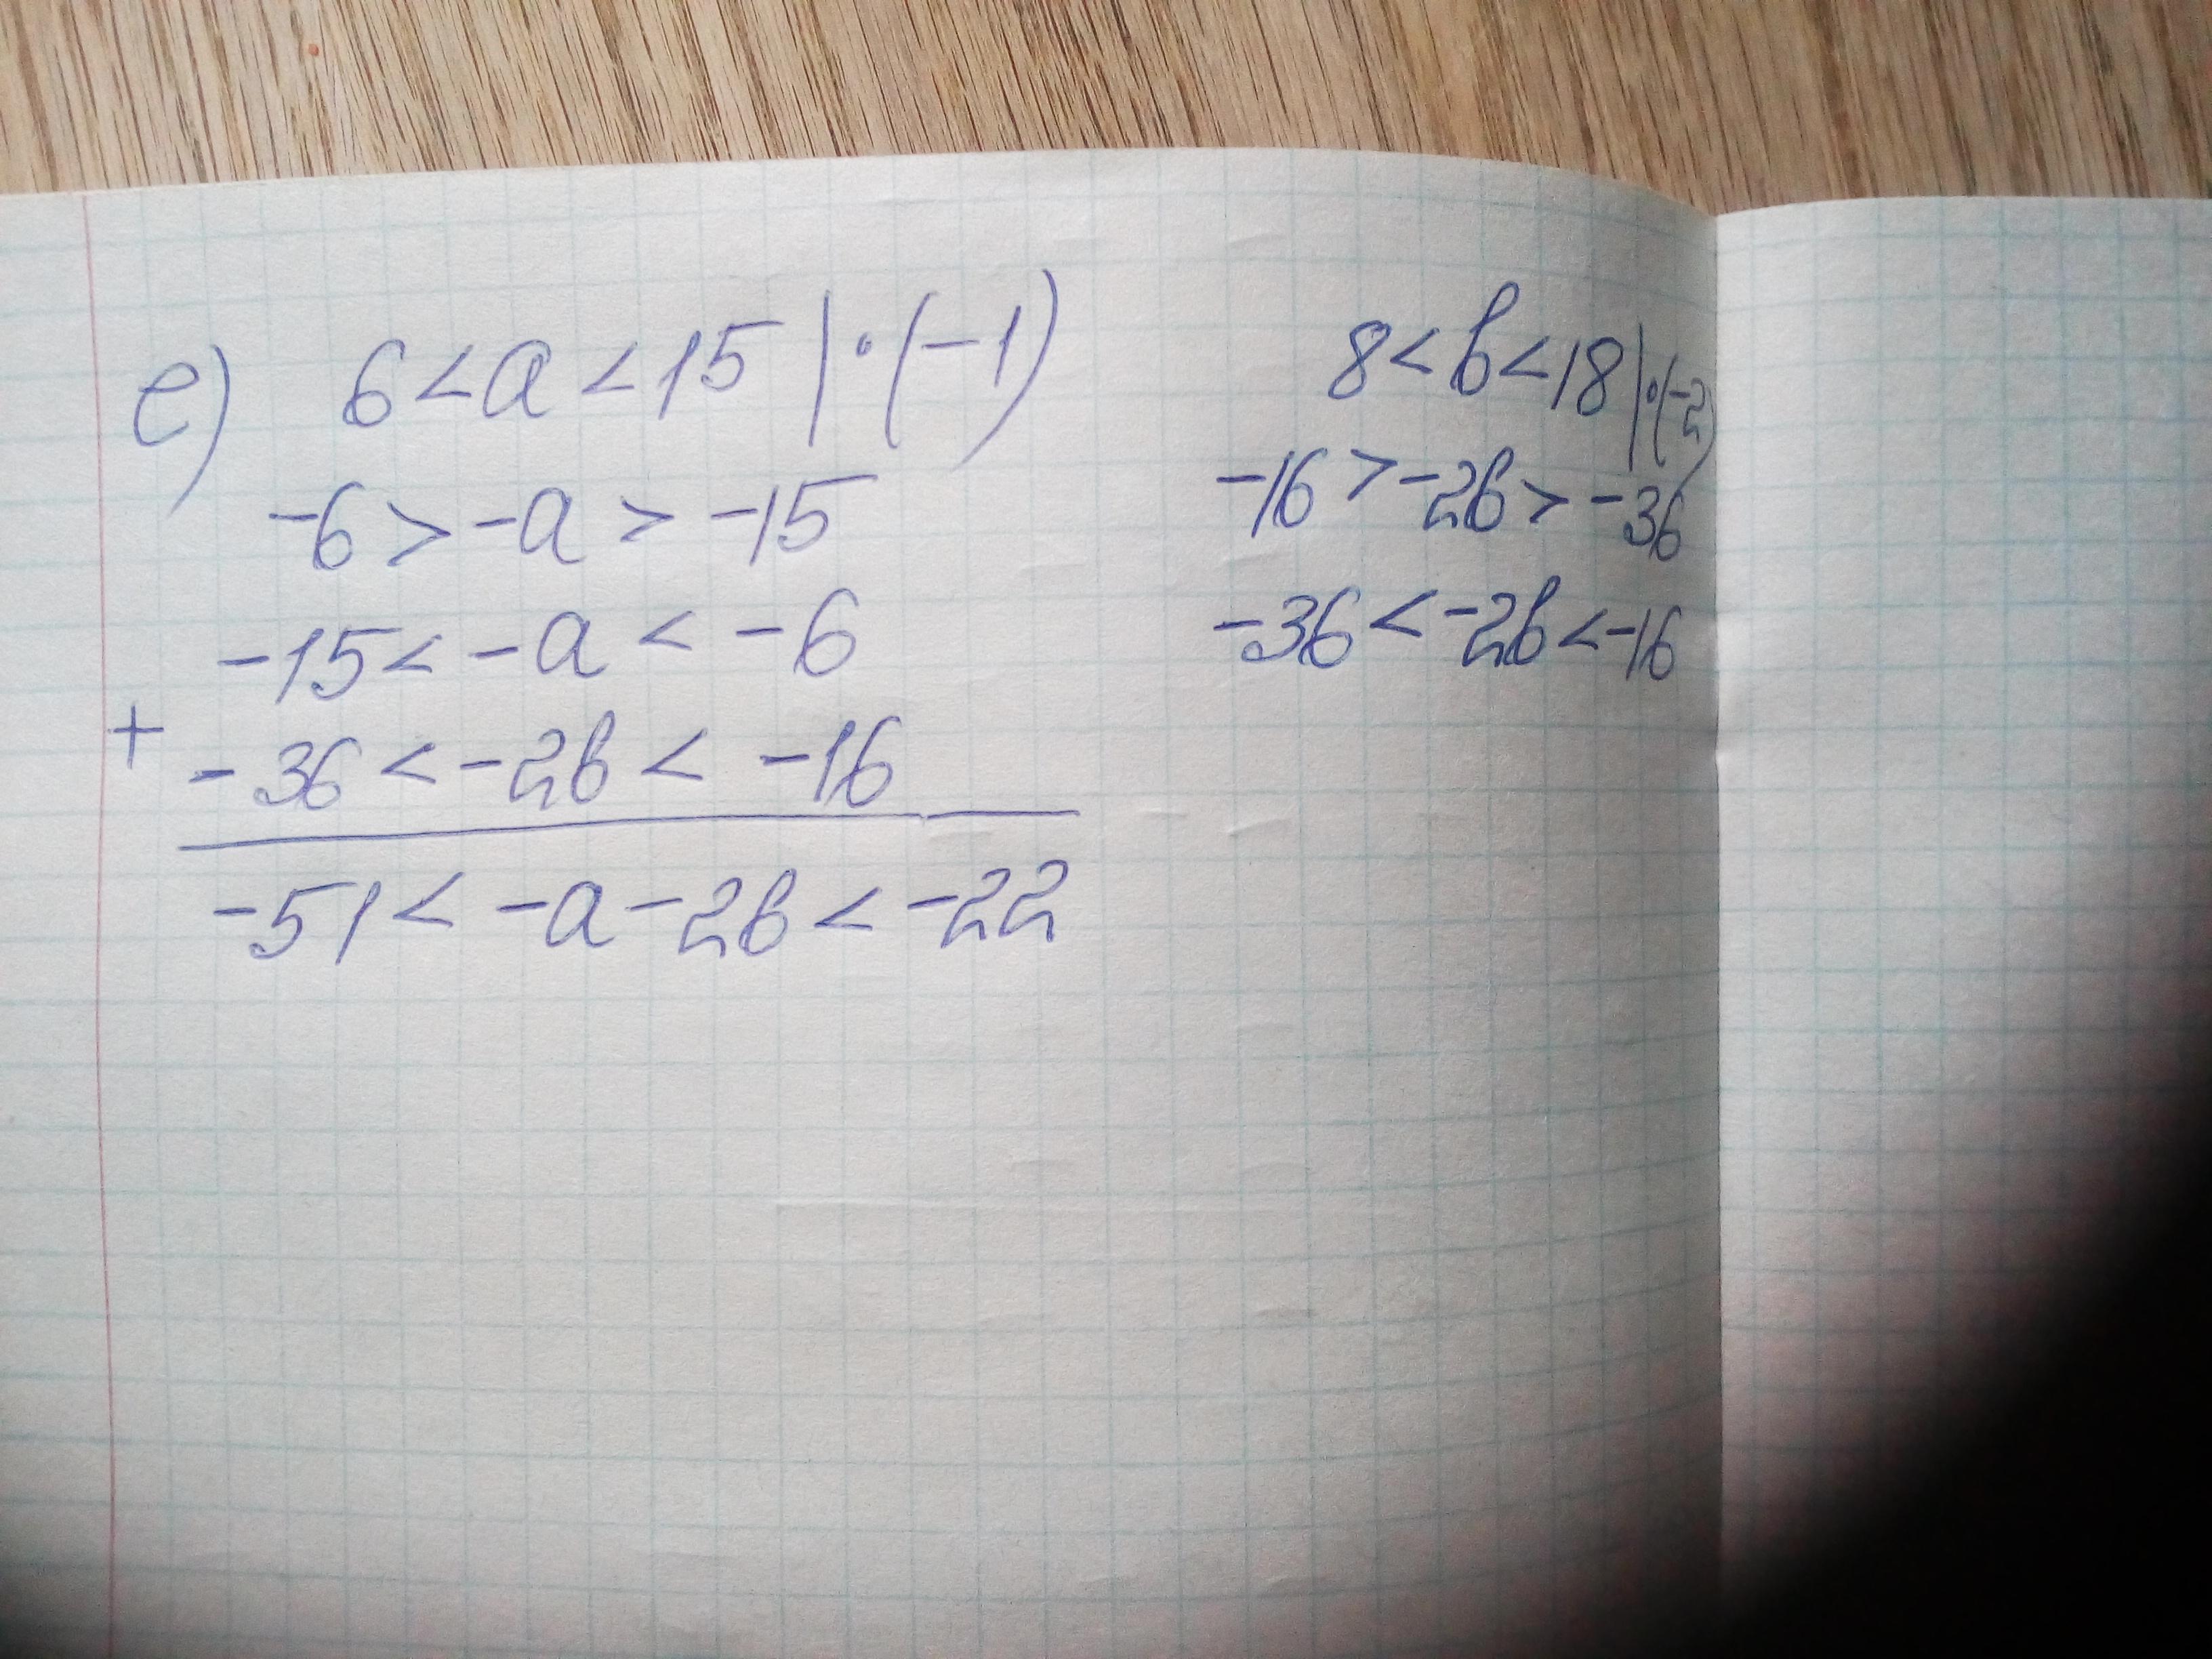 е) 6 < a < 15 | · (-1)
-6 > -a > -15
-15 < -a < -6
+ -36 < -2b < -16
-51 < -a - 2b < -22
8 < b < 18 | · (-2)
-16 > -2b > -36
-36 < -2b < -16